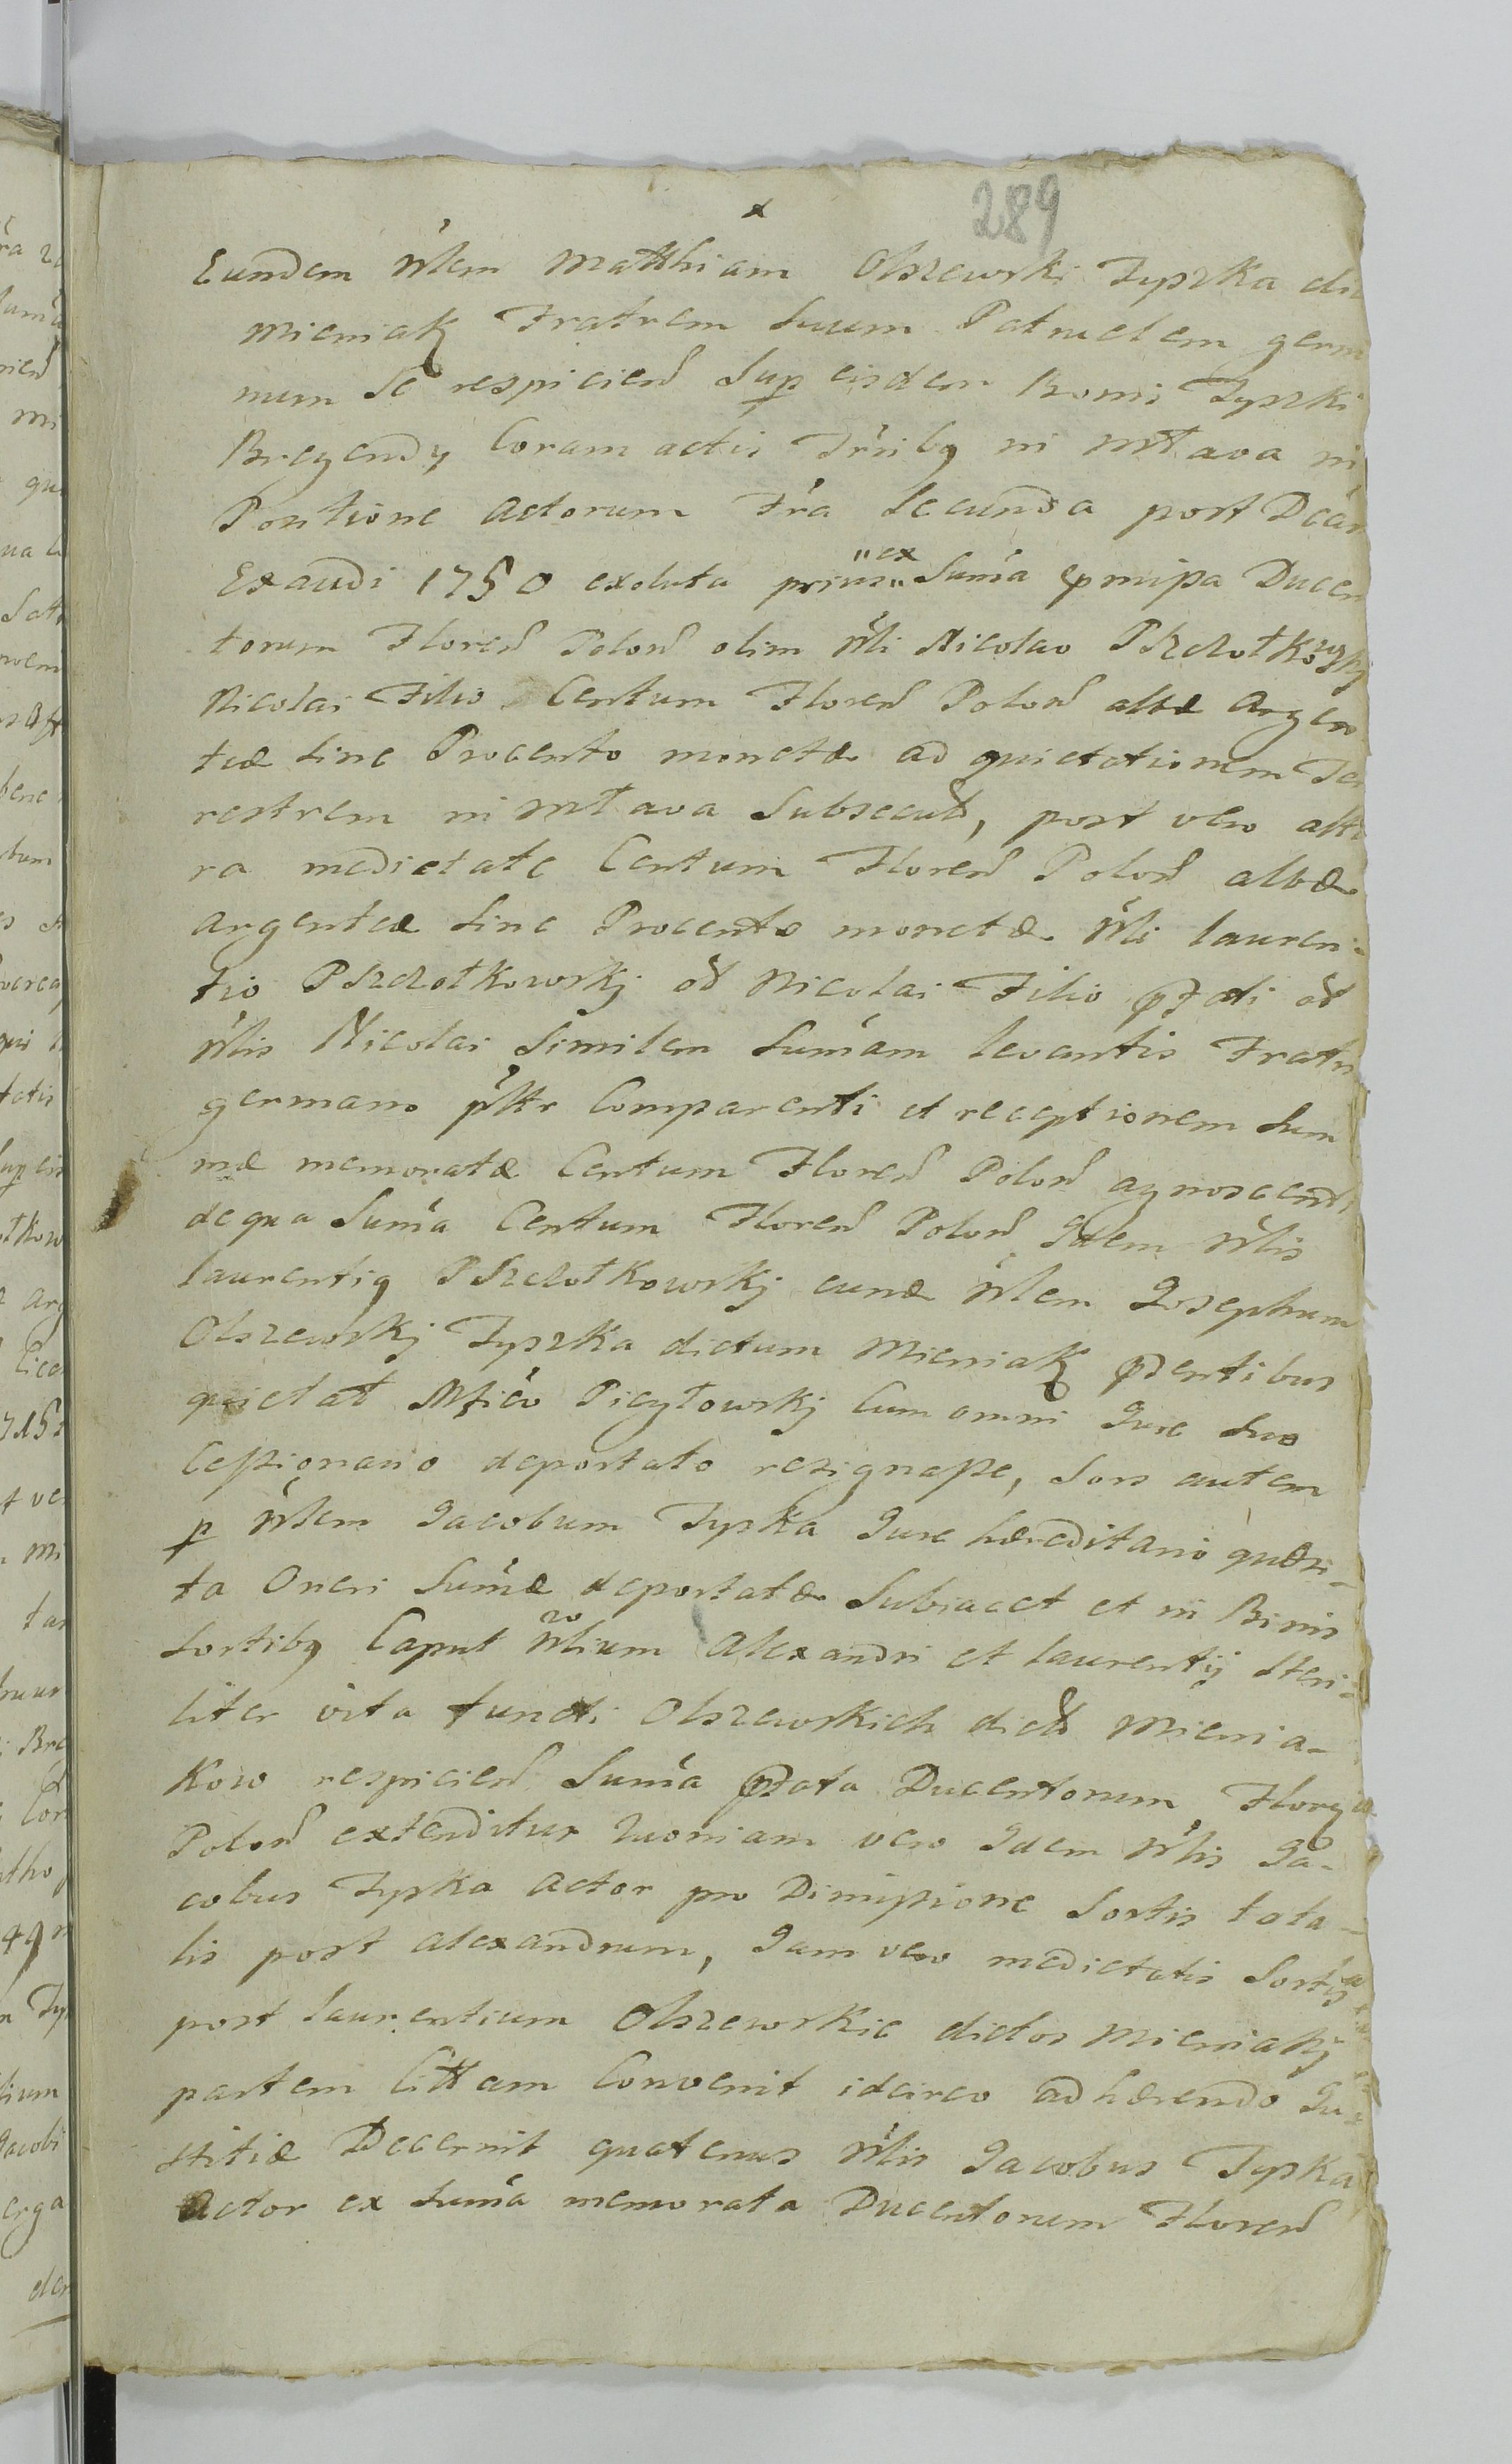 289
Eundem Wlem Matthiam Olszewski Tyszka dic
Mieniak Fratrem Suum Patruelem germ
num Se respicien Sup eisdem Bonis Tyszki
Bregendy Coram actis Trribq in Mława in
Positione Actorum Fra Secunda post Dcam
Exaudi 1750 exoluta prius ex Suma pmissa Ducen
torum Floren Polon olim Wli Nicolao Pszczołkowskj
Nicolai Filio Centum Floren Polon albæ Argen
teæ Sine Procento monetæ ad quietationem Ter
restrem in Mława Subsecut, post vero alte
ra medietate Centum Floren Polon albæ
Argenteæ Sine Procento monetæ Wli Lauren-
tio Pszczołkowskj od Nicolai Filio pfati od
Wlis Nicolai Similem Sumam levantis Fratri
germano pltr Comparenti et receptionem Sum
mæ memoratæ Centum Floren Polon agnoscenti
de qua Suma Centum Floren Polon Idem Wlis
Laurentiq Pszczołkowskj eund Wlem Josephum
Olszewskj Tyszka dictum Mieniak pdentibus
quietat Mfico Picytowskj Cum omni Jure Suo
Cessionario deportato resignasse, Sors autem
p Wlem Jacobum Tyska Jure hæreditario quæsi-
ta Oneri Sumæ deportatæ Subiacet et in Binis
Sortibq Caput Wlium ro Alexandri et Laurentij Steri-
liter vita functi Olszewskich dict Mienia-
kow respicien Suma pfata Ducentorum Floren
Polon extenditur Quoniam vero Idem Wlis Ja-
cobus Tyska Actor pro Dimissione Sortis tota-
lis post Alexandrum, Jam vero medietatis Sortis
post Laurentium Olszewskie dictos Mieniakj
partem Cittam Convenit idcirco adhærendo Ju-
stitiæ Decernit quatenus Wlis Jacobus Tyska
Actor ex Suma memorata Ducentorum Floren